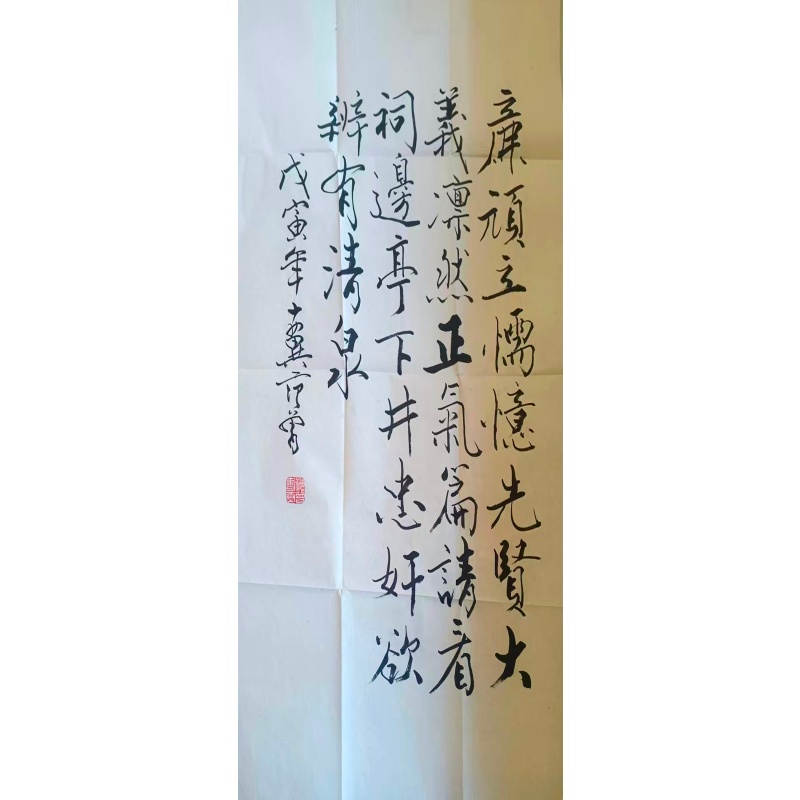 廉頑立懦憶先賢大
義凛然正氣篇請看
祠邊亭下井忠奸欲
辨有清泉
戊寅年十翼范曾